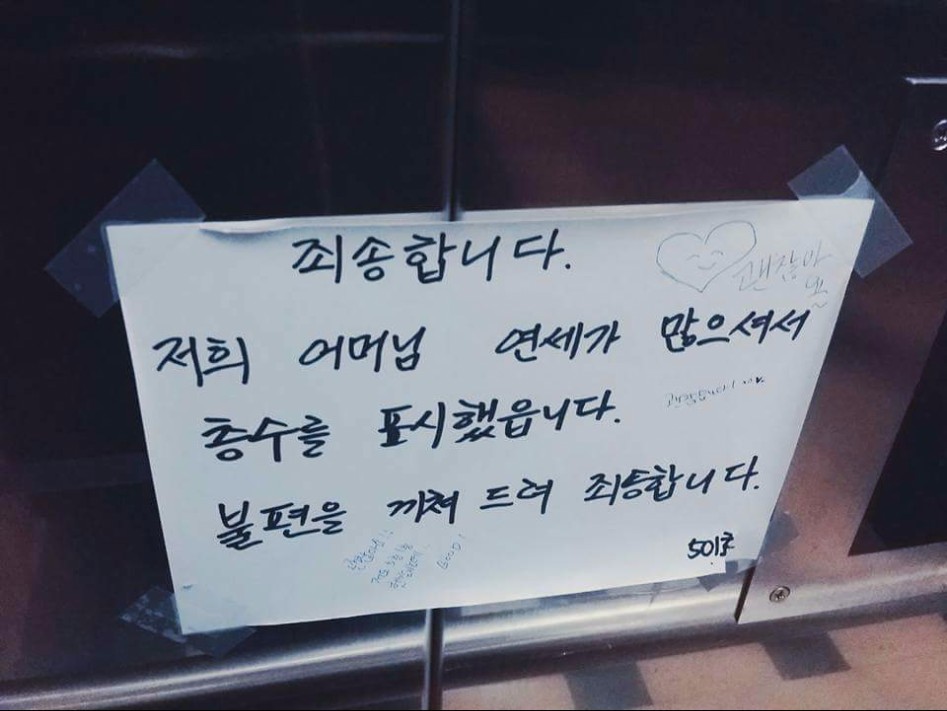 죄송합니다.
괜찮아
요~
저희 어머님 연세가 많으셔서
층수를 표시했읍니다.
괜찮습니다! ^^♥
불편을 끼쳐 드려 죄송합니다.
GOOD!
501호